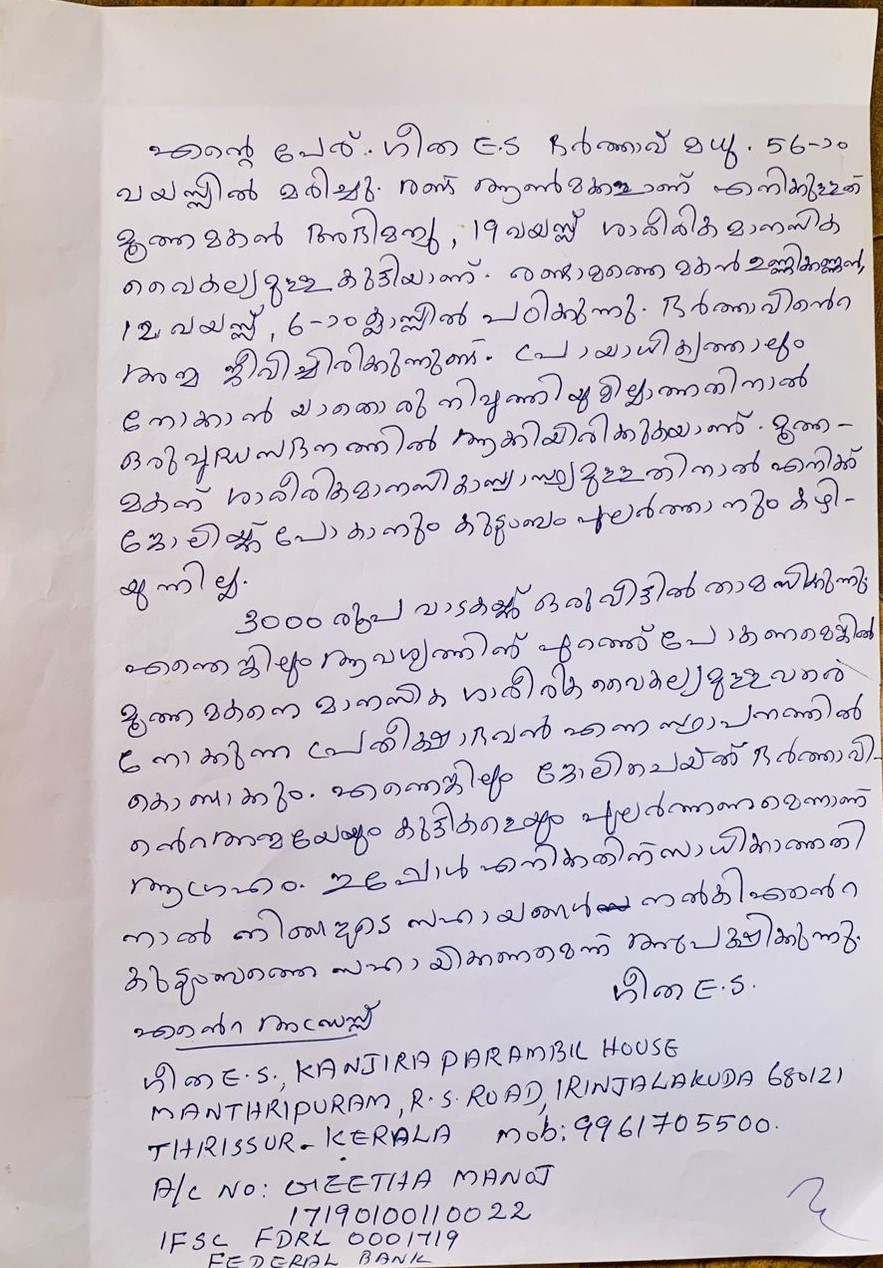 എന്റെ പേര്. ഗീത E.S ഭർത്താവ് മധു. 56-ാം
വയസ്സിൽ മരിച്ചു. രണ്ട് ആൺമക്കളാണ് എനിക്കുള്ളത്
മൂത്ത മകൻ അഭിമന്യു, 19 വയസ്സ് ശാരീരിക മാനസിക
വൈകല്യമുള്ള കുട്ടിയാണ്. രണ്ടാമത്തെ മകൻ ഉണ്ണികണ്ണൻ,
12 വയസ്സ്, 6-ാം ക്ലാസ്സിൽ പഠിക്കുന്നു. ഭർത്താവിൻെറ
അമ്മ ജീവിച്ചിരിക്കുന്നുണ്ട്. പ്രായാധിക്യത്താലും
നോക്കാൻ യാതൊരു നിവൃത്തിയുമില്ലാത്തതിനാൽ
ഒരു വൃദ്ധസദനത്തിൽ ആക്കിയിരിക്കുകയാണ്. മൂത്ത-
മകന് ശാരീരികമാനസികാസ്വാസ്ഥ്യമുള്ളതിനാൽ എനിക്ക്
ജോലിയ്ക്ക് പോകാനും കുടുംബം പുലർത്താനും കഴി-
യുന്നില്ല.
3000 രൂപ വാടകയ്ക്ക് ഒരു വീട്ടിൽ താമസിക്കുന്നു.
എന്തെങ്കിലും ആവശ്യത്തിന് പുറത്ത് പോകണമെങ്കിൽ
മൂത്ത മകനെ മാനസിക ശാരീരിക വൈകല്യമുള്ളവരെ
നോക്കുന്ന പ്രതീക്ഷാഭവൻ എന്ന സ്ഥാപനത്തിൽ
കൊണ്ടാക്കും. എന്തെങ്കിലും ജോലിചെയ്ത് ഭർത്താവി-
ൻെറ അമ്മയേയും കുട്ടികളെയും പുലർത്തണമെന്നാണ്
ആഗ്രഹം. ഇപ്പോൾ എനിക്കതിന് സാധിക്കാത്തതി
നാൽ നിങ്ങളുടെ സഹായങ്ങൾ നൽകി എൻെറ
കുടുംബത്തെ സഹായിക്കണമെന്ന് അപേക്ഷിക്കുന്നു.
ഗീത E.S.
എൻെറ അഡ്രസ്സ്
ഗീത E.S., KANJIRAPARAMBIL HOUSE
MANTHRIPURAM, R.S. ROAD, IRINJALAKUDA 680121
THRISSUR - KERALA mob: 9961705500.
A/C NO: GEETHA MANOJ
17190100110022
IFSC FDRL 0001719
FEDERAL BANK